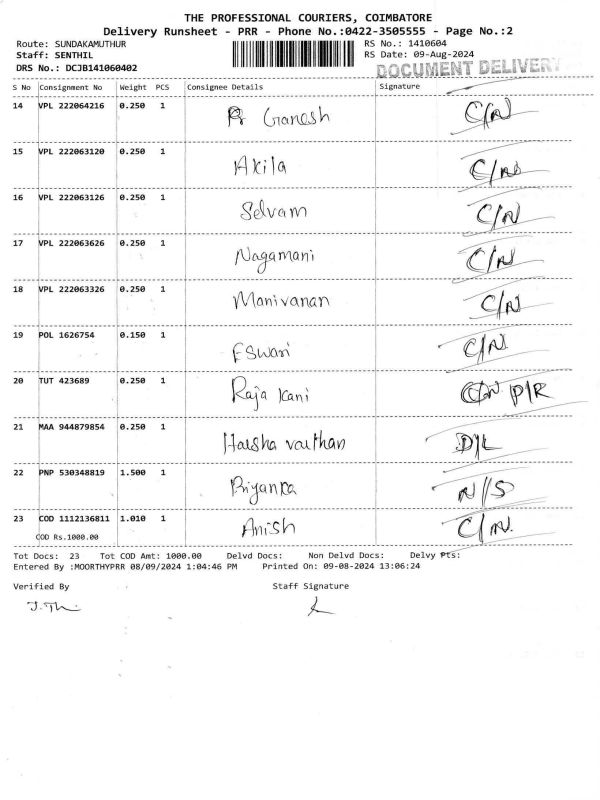 THE PROFESSIONAL COURIERS, COIMBATORE
Delivery Runsheet - PRR - Phone No.:0422-3505555 - Page No.:2
Route: SUNDAKAMUTHUR RS No.: 1410604
Staff: SENTHIL RS Date: 09-Aug-2024
DRS No.: DCJB141060402 DOCUMENT DELIVERY
S No Consignment No Weight PCS Consignee Details Signature
14 VPL 222064216 0.250 1 Ganesh C/N
15 VPL 222063120 0.250 1 Akila C/N
16 VPL 222063126 0.250 1 Selvam C/N
17 VPL 222063626 0.250 1 Nagamani C/N
18 VPL 222063326 0.250 1 Manivanan C/N
19 POL 1626754 0.150 1 Eswari C/N
20 TUT 423689 0.250 1 Raja Kani P/R
21 MAA 944879854 0.250 1 Harsha varthan D/L
22 PNP 530348819 1.500 1 Priyanka N/S
23 COD 1112136811 1.010 1 Anish C/N
COD Rs.1000.00
Tot Docs: 23 Tot COD Amt: 1000.00 Delvd Docs: Non Delvd Docs: Delvy Pts:
Entered By :MOORTHYPRR 08/09/2024 1:04:46 PM Printed On: 09-08-2024 13:06:24
Verified By Staff Signature